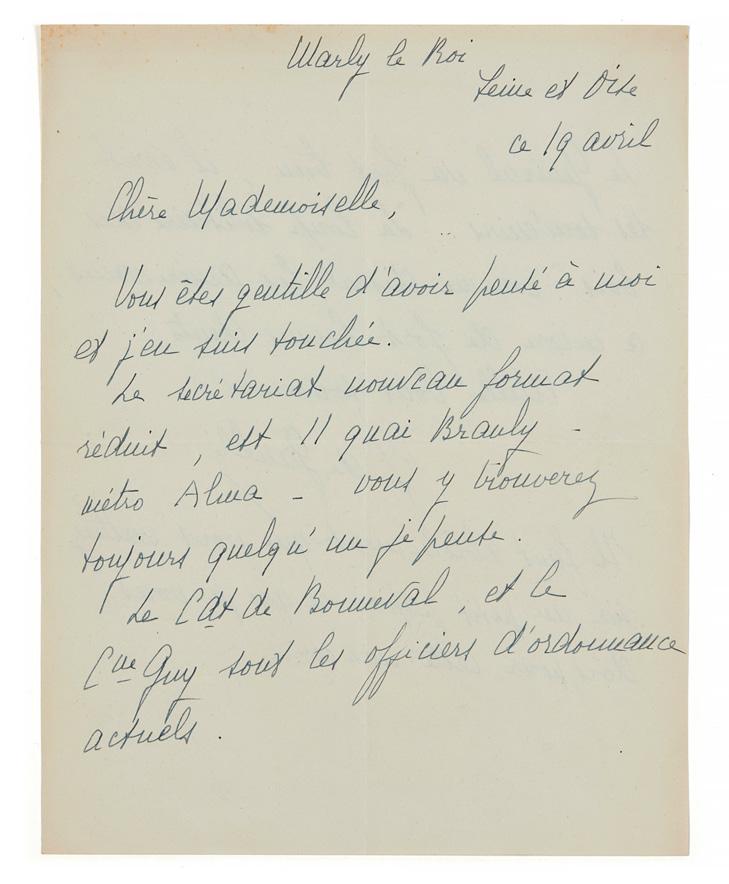 Marly le Roi
Seine et Oise
ce 19 avril
Chère Mademoiselle,
Vous êtes gentille d'avoir pensé à moi
et j'en suis touchée.
Le secrétariat nouveau format
réduit, est 11 quai Branly -
métro Alma - vous y trouverez
toujours quelqu'un je pense.
Le Cdt de Bonneval, et le
Cne Guy sont les officiers d'ordonnance
actuels.